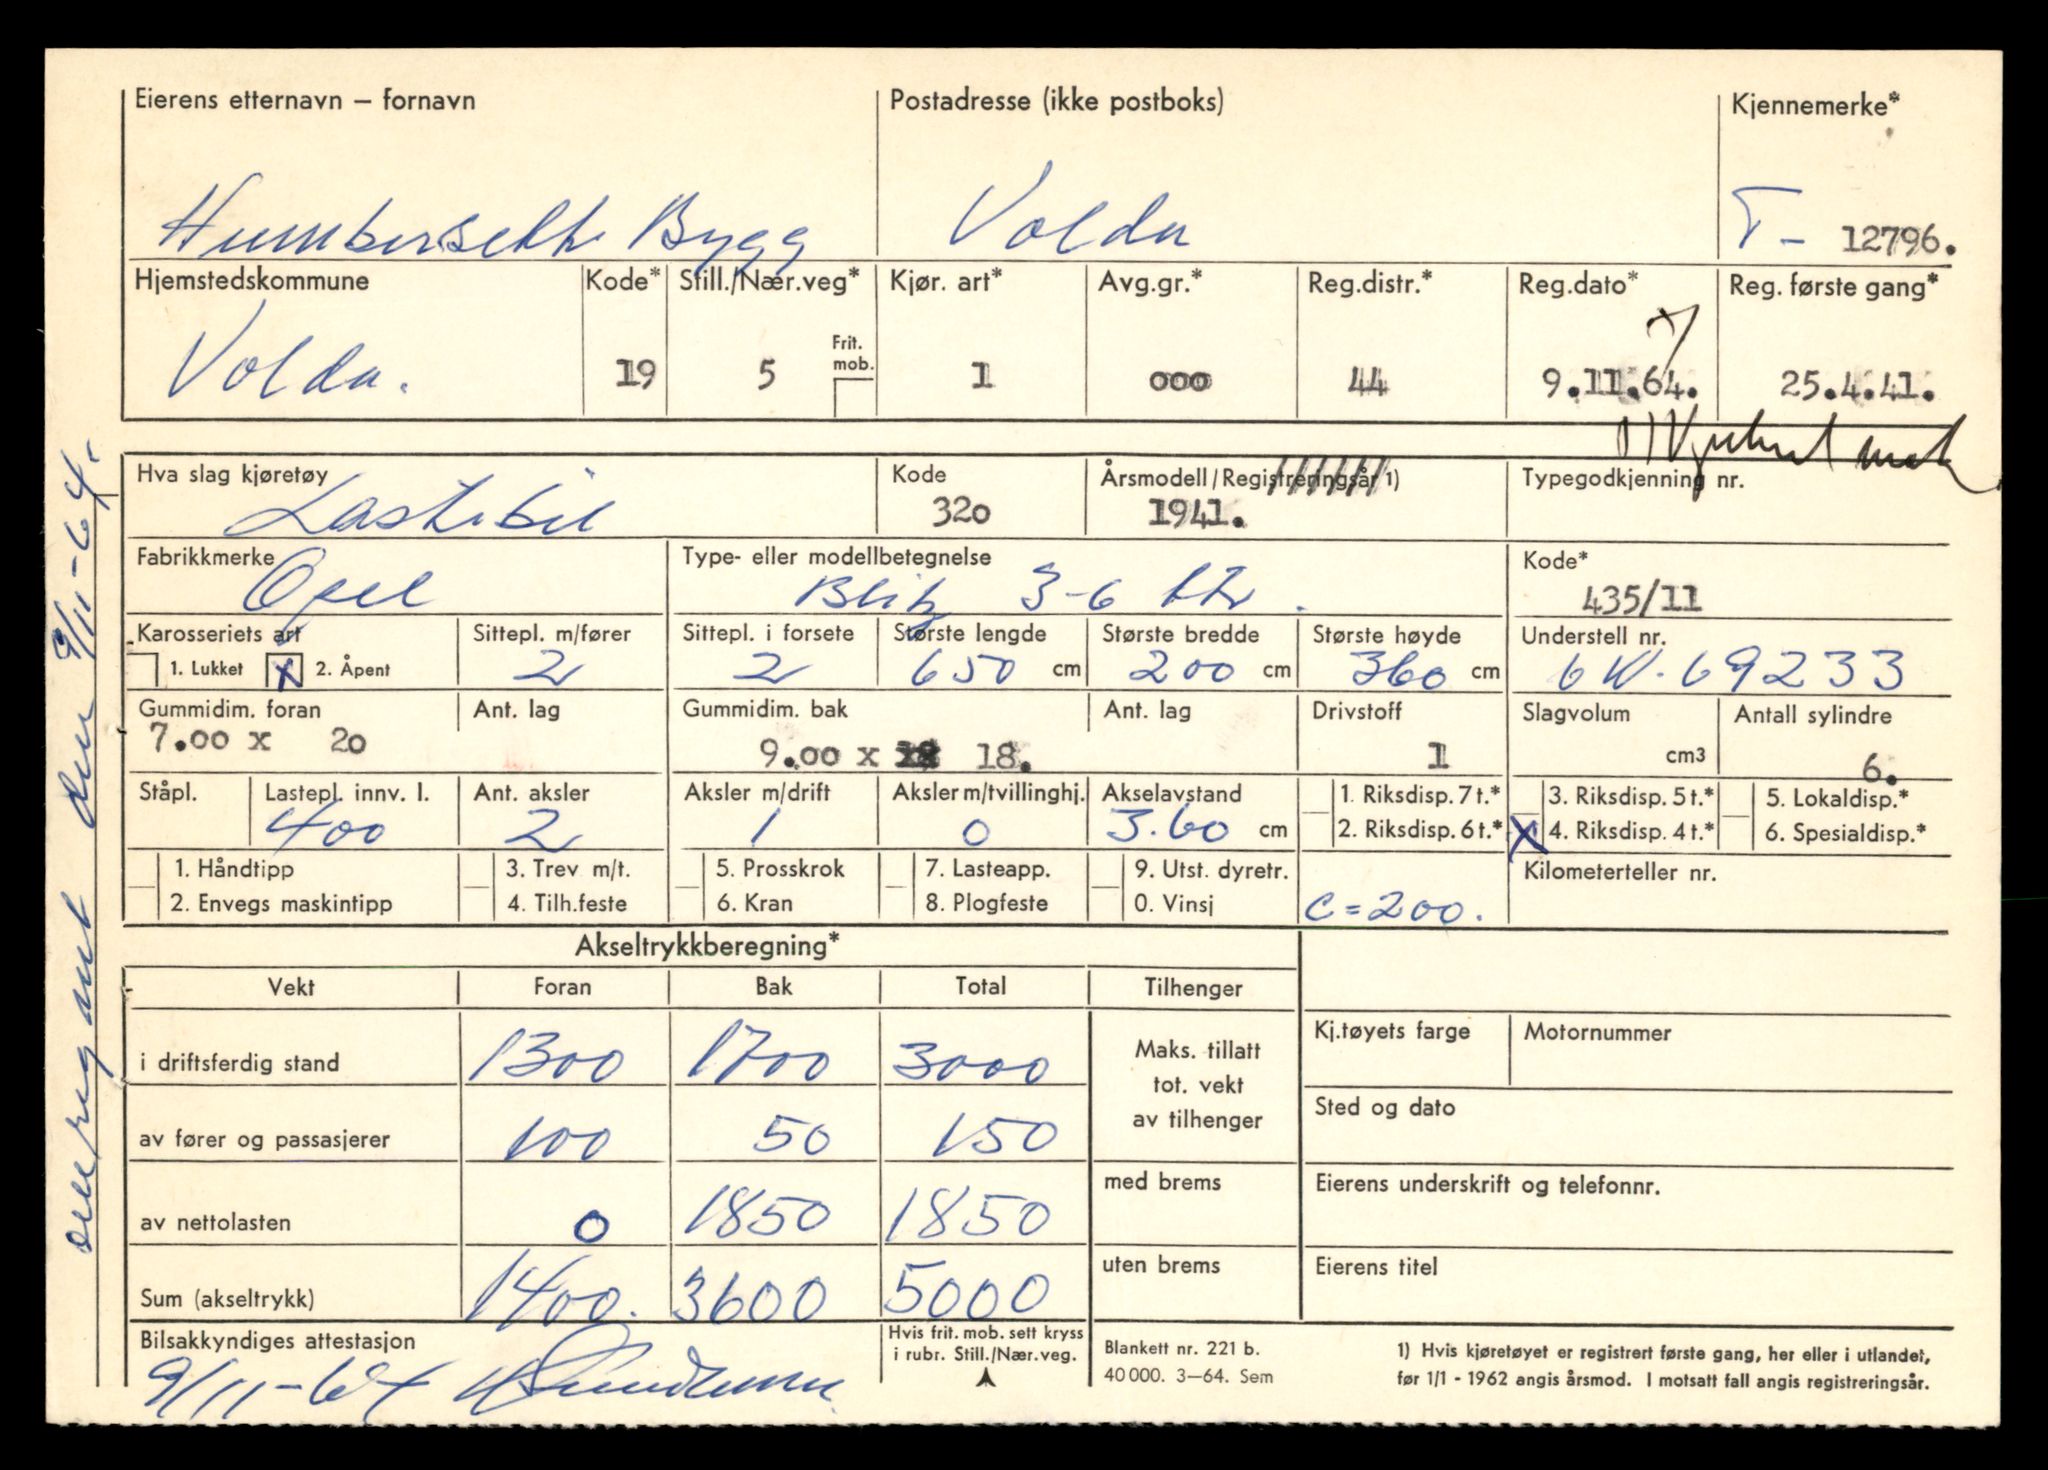 Eierens etternavn – fornavn Postadresse (ikke postboks) Kjennemerke*
Humberseth Bygg Volda T- 12796.
Hjemstedskommune Kode* Still./Nær.veg* Kjør. art* Avg.gr.* Reg.distr.* Reg.dato* Reg. første gang*
Frit. mob.
Volda. 19 5 1 000 44 9.11.64. 25.4.41.
Hva slag kjøretøy Kode Årsmodell/Registreringsår 1) Typegodkjenning nr.
Lastebil 320 1941.
Fabrikkmerke Type- eller modellbetegnelse Kode*
Opel Blitz 3-6 435/11
Karosseriets art Sittepl. m/fører Sittepl. i forsete Største lengde Største bredde Største høyde Understell nr.
1. Lukket X 2. Åpent 2 2 650 cm 200 cm 360 cm 6W-69233
Gummidim. foran Ant. lag Gummidim. bak Ant. lag Drivstoff Slagvolum Antall sylindre
7.00 x 20 9.00 x 18. 1 cm3 6.
Ståpl. Lastepl. innv. l. Ant. aksler Aksler m/drift Aksler m/tvillinghj. Akselavstand 1. Riksdisp. 7 t.* 3. Riksdisp. 5 t.* 5. Lokaldisp.*
400 2 1 0 3.60 cm 2. Riksdisp. 6 t.* X 4. Riksdisp. 4 t.* 6. Spesialdisp.*
1. Håndtipp 3. Trev m/t. 5. Prosskrok 7. Lasteapp. 9. Utst. dyretr. Kilometerteller nr.
2. Envegs maskintipp 4. Tilh.feste 6. Kran 8. Plogfeste 0. Vinsj c=200.
Akseltrykkberegning*
Vekt Foran Bak Total Tilhenger
i driftsferdig stand 1300 1700 3000
Maks. tillatt
tot. vekt
av tilhenger
Kj.tøyets farge Motornummer
av fører og passasjerer 100 50 150
Sted og dato
av nettolasten 0 1850 1850
med brems
Eierens underskrift og telefonnr.
Sum (akseltrykk) 1400. 3600 5000
uten brems
Eierens titel
Bilsakkyndiges attestasjon
9/11-64
Hvis frit. mob. sett kryss
i rubr. Still./Nær.veg.
Blankett nr. 221 b.
40 000. 3–64. Sem
1) Hvis kjøretøyet er registrert første gang, her eller i utlandet,
før 1/1 - 1962 angis årsmod. I motsatt fall angis registreringsår.
omregant den 9/11-64.